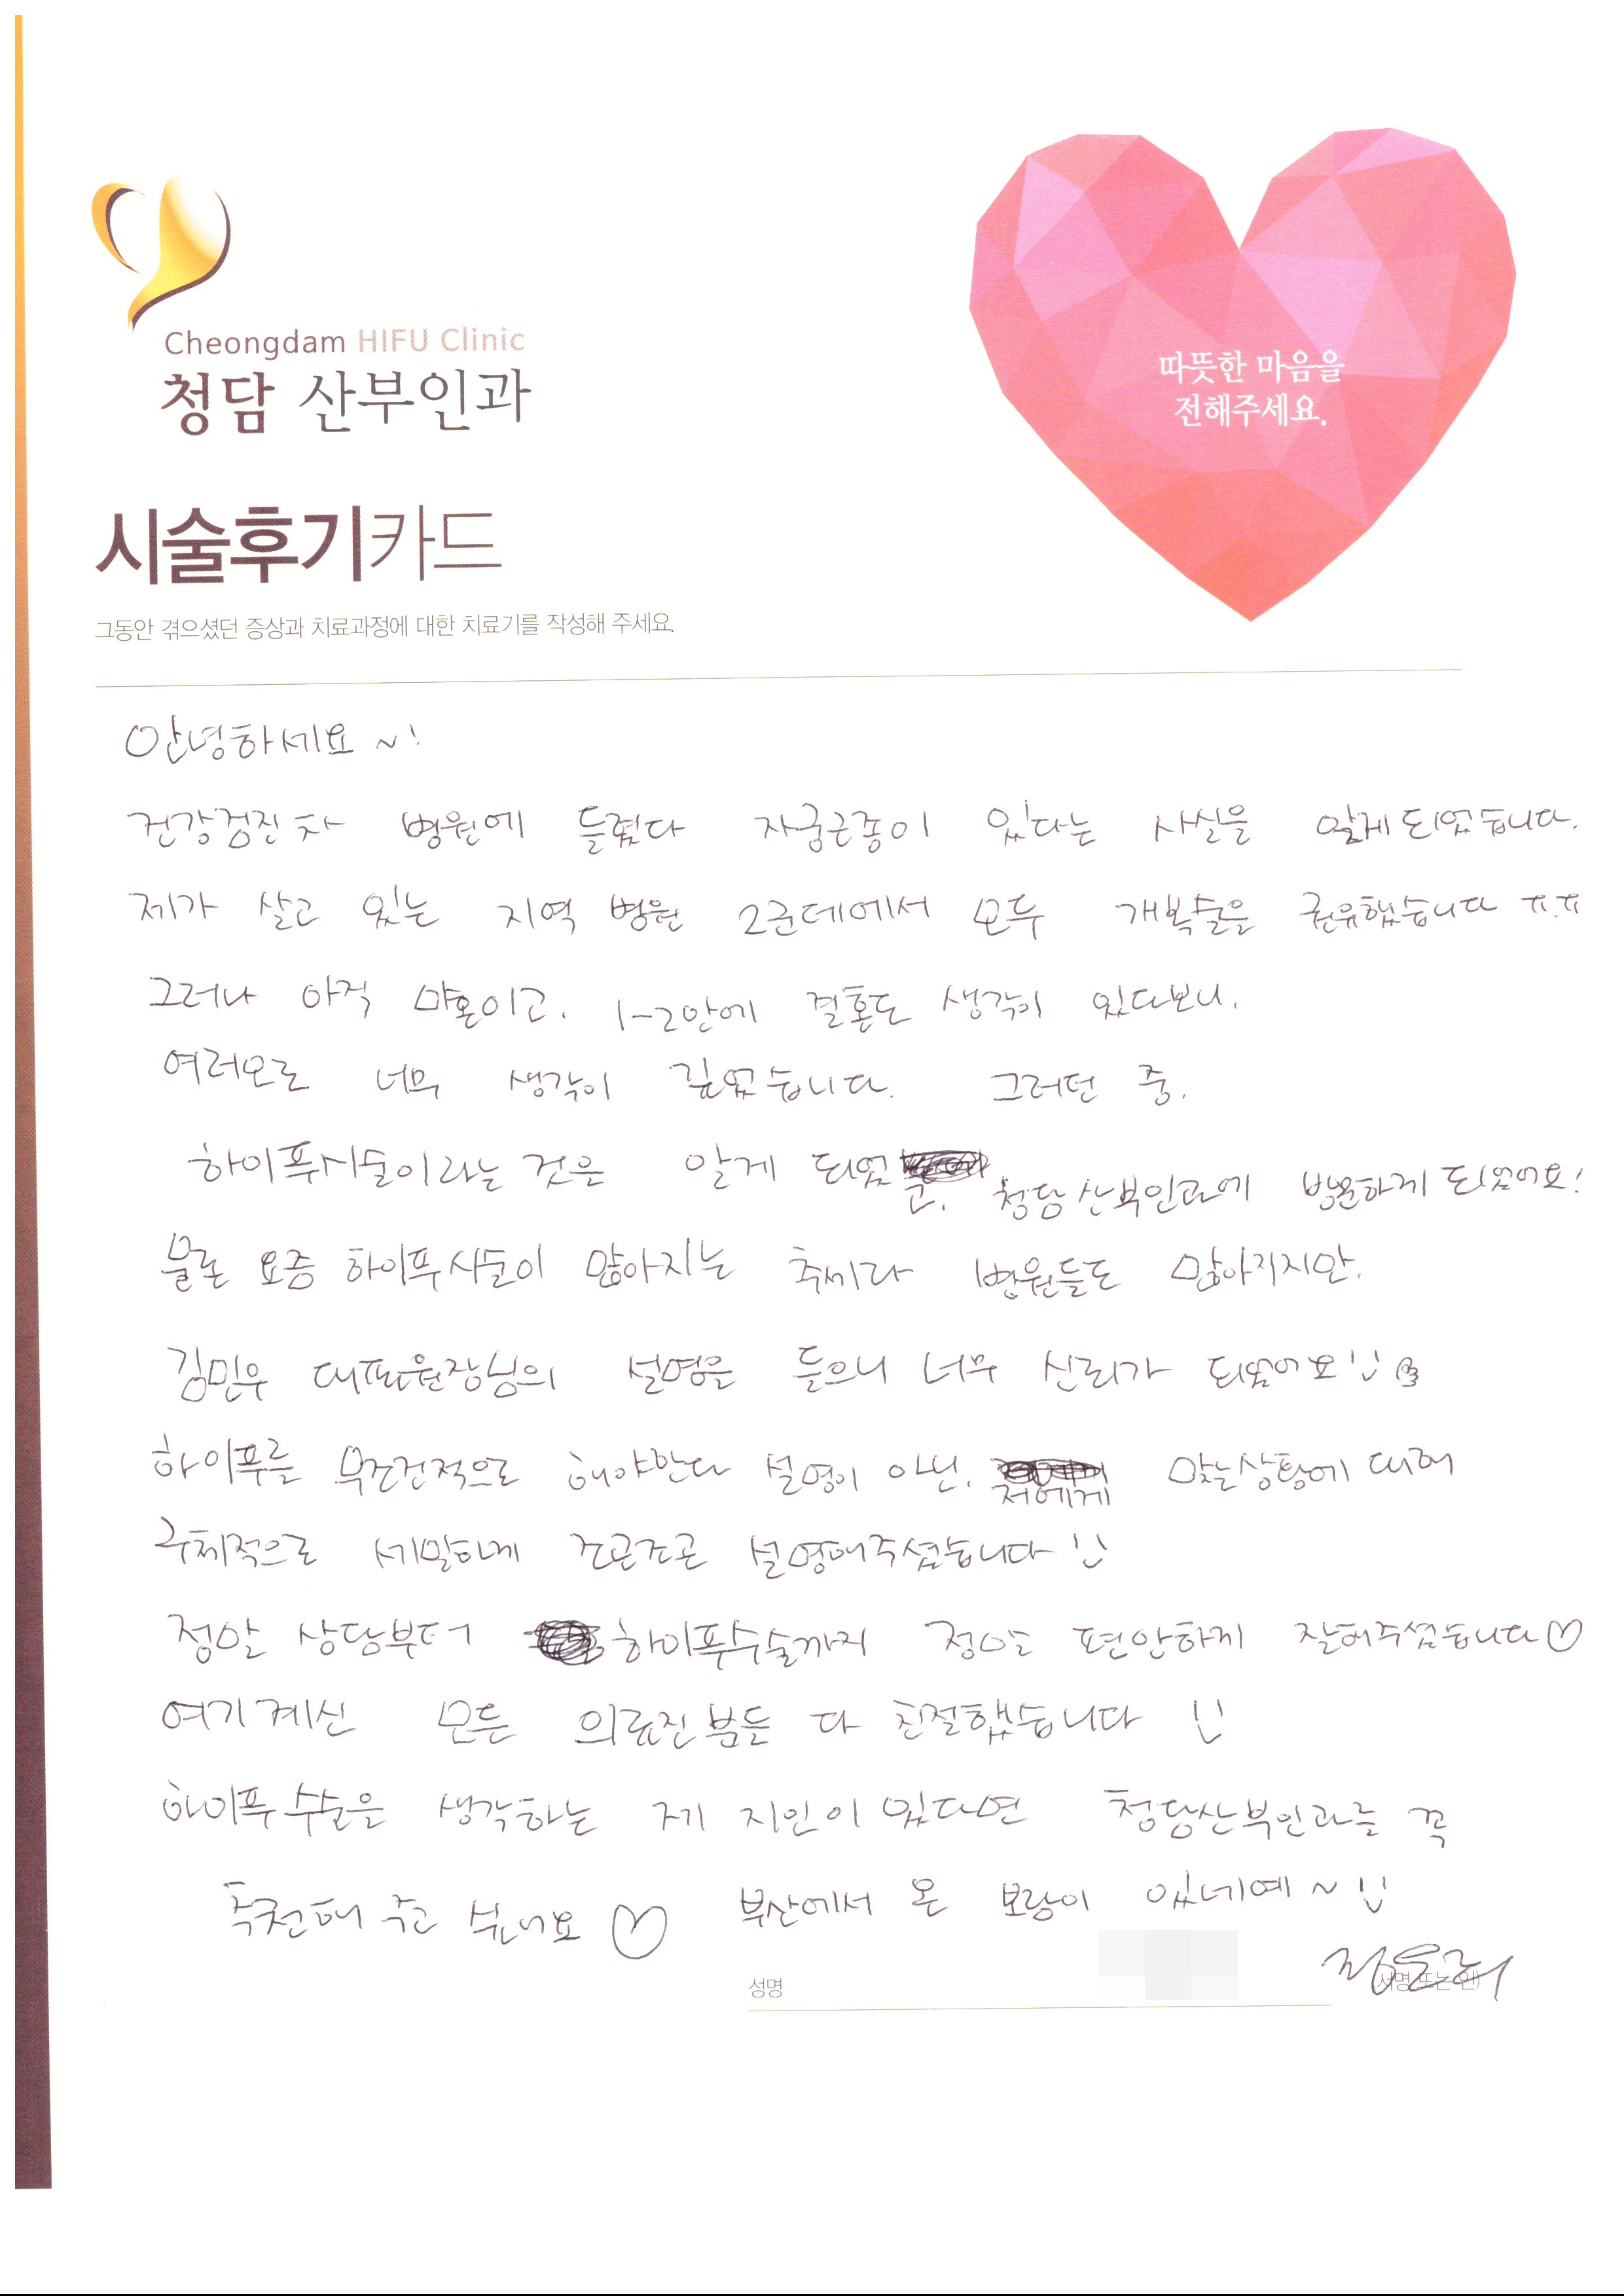 Cheongdam HIFU Clinic
청담 산부인과
따뜻한 마음을
전해주세요.
시술후기카드
그동안 겪으셨던 증상과 치료과정에 대한 치료기를 작성해 주세요.
안녕하세요~!
건강검진차 병원에 들렸다 자궁근종이 있다는 사실을 알게되었습니다.
제가 살고 있는 지역 병원 2군데에서 모두 개복술을 권유했습니다 ㅠ.ㅠ
그러나 아직 미혼이고, 1-2안에 결혼도 생각이 있다보니,
여러모로 너무 생각이 깊었습니다. 그러던 중,
하이푸시술이라는 것은 알게 되었고, 청담산부인과에 방문하게 되었어요!
물론 요즘 하이푸시술이 많아지는 추세라 병원들도 많아지지만,
김민우 대표원장님의 설명을 들으니 너무 신뢰가 되었어요!
하이푸를 무조건적으로 해야한다 설명이 아닌, 저에게 맞는상황에 대해
구체적으로 세밀하게 조근조곤 설명해주셨습니다
정말 상담부터 하이푸수술까지 정말 편안하게 잘해주셨습니다♡
여기계신 모든 의료진분들 다 친절했습니다
하이푸수술은 생각하는 제 지인이 있다면 청담산부인과를 꼭
추천해 주고 싶네요♡ 부산에서 온 보람이 있네예~
성명
서명 또는 인)